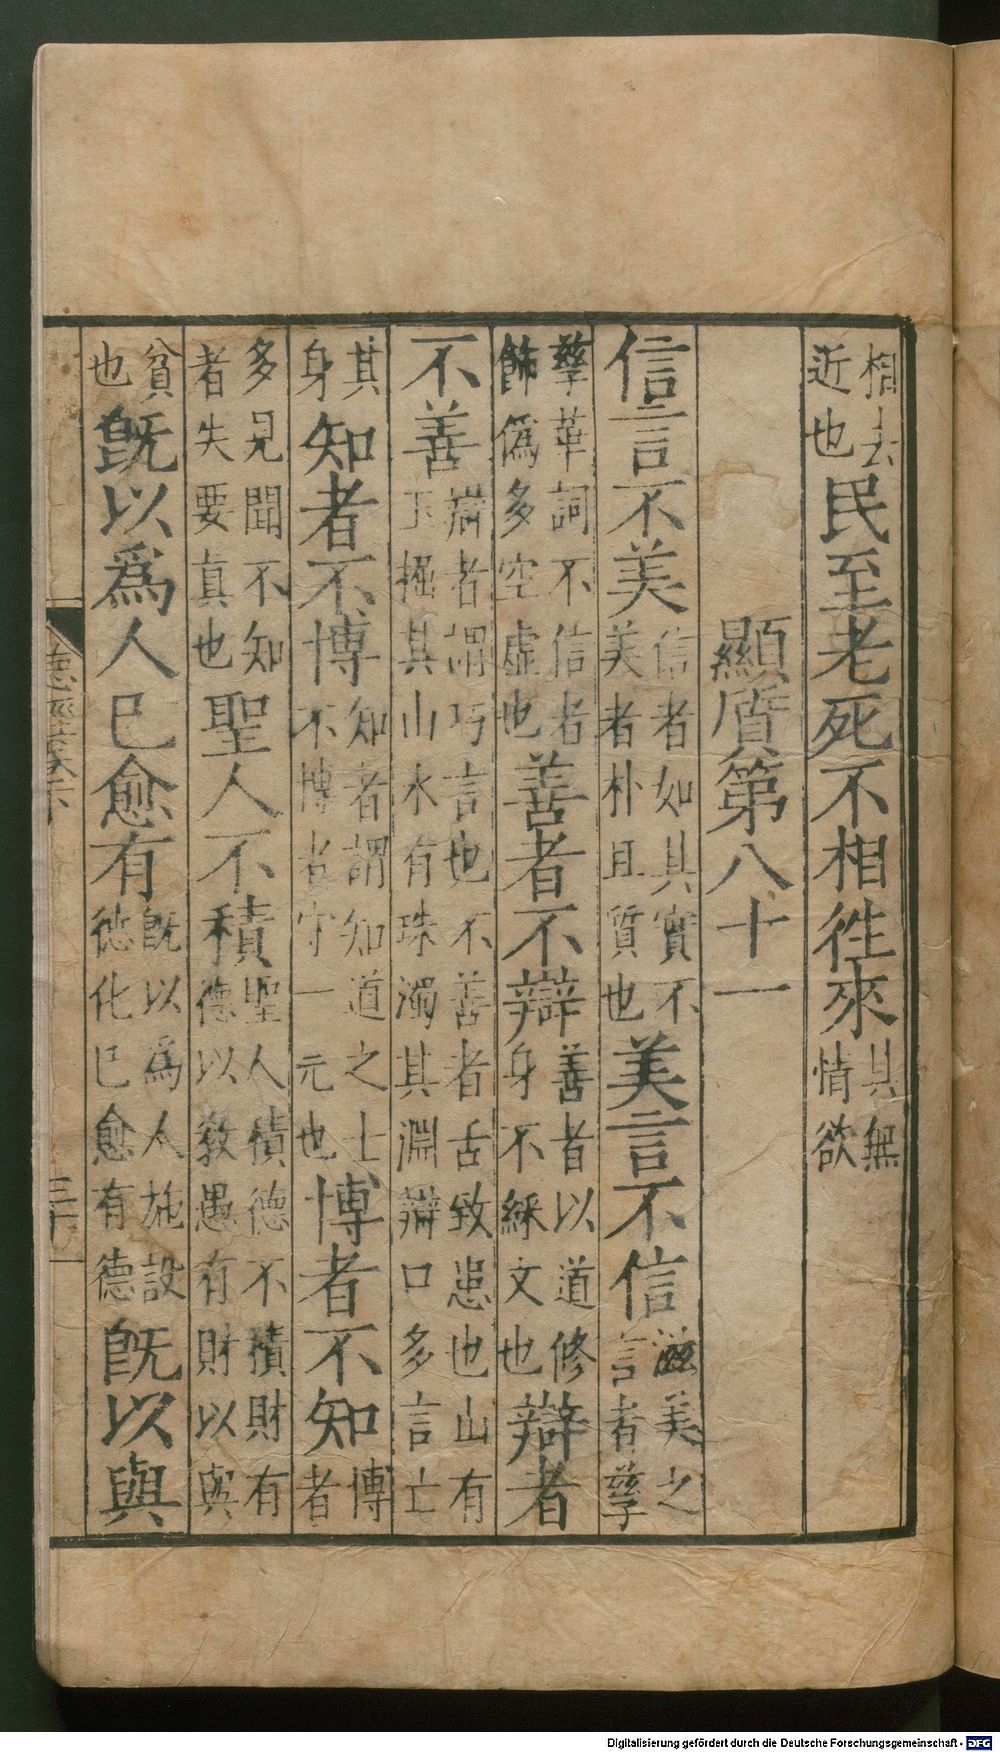 相去近也民至老死不相徃來其無情欲
顯質第八十一
信言不美信者如其實不美者朴且質也美言不信滋美之言者孳
孳華詞不信者飾偽多空虛也善者不辯善者以道修身不綵文也辯者
不善辯者謂巧言也不善者舌致患也山有玉掘其山水有珠濁其淵辯口多言亡
其身知者不博知者謂知道之士不博者守一元也博者不知博者
多見聞不知者失要真也聖人不積聖人積德不積財有德以教愚有財以與
貧也旣以爲人已愈有旣以爲人施設德化已愈有德旣以與
Digitalisierung gefördert durch die Deutsche Forschungsgemeinschaft - DFG